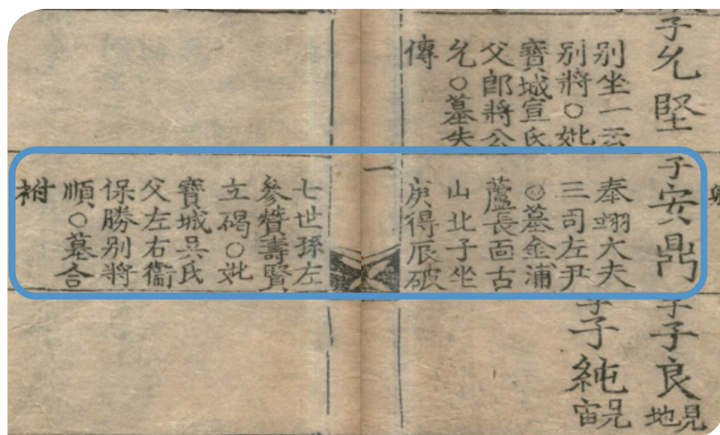 子允堅
別坐一云
別將○妣
寶城宣氏
父郎將公
允○墓失
傳
子安鼎
奉翊大夫
三司左尹
○墓金浦
蘆長面古
山北子坐
庚得辰破
一
七世孫左
參贊壽賢
立碣○妣
寶城吳氏
父左右衞
保勝別將
順○墓合
祔
子子良見地
子子純見宙